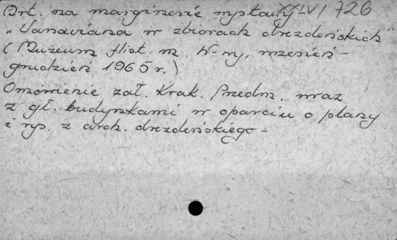 Art. na marginesie wystawy XI-VI 726
„Varsaviana w zbiorach drezdeńskich"
(Muzeum Hist. m. W-wy, wrzesień -
grudzień 1965 r.)
Omówienie zał. Krak. Przedm. wraz
z gł. budynkami w oparciu o plany
i rys. z arch. drezdeńskiego -